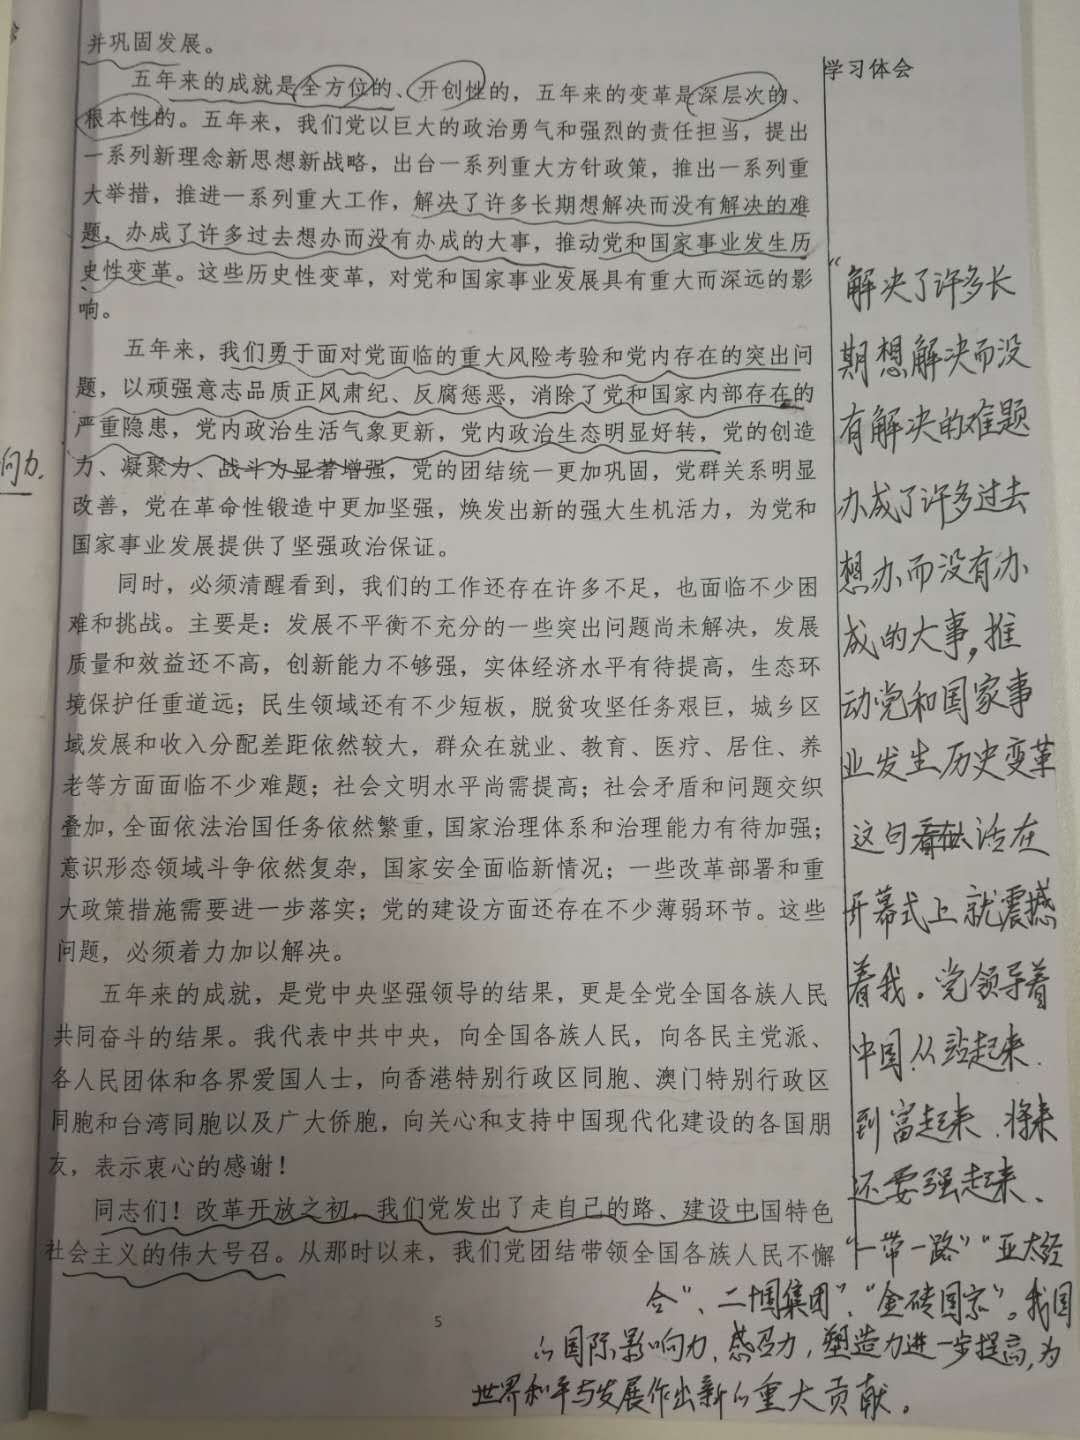 并巩固发展。
五年来的成就是全方位的、开创性的，五年来的变革是深层次的、
根本性的。五年来，我们党以巨大的政治勇气和强烈的责任担当，提出
一系列新理念新思想新战略，出台一系列重大方针政策，推出一系列重
大举措，推进一系列重大工作，解决了许多长期想解决而没有解决的难
题，办成了许多过去想办而没有办成的大事，推动党和国家事业发生历
史性变革。这些历史性变革，对党和国家事业发展具有重大而深远的影
响。
五年来，我们勇于面对党面临的重大风险考验和党内存在的突出问
题，以顽强意志品质正风肃纪、反腐惩恶，消除了党和国家内部存在的
严重隐患，党内政治生活气象更新，党内政治生态明显好转，党的创造
力、凝聚力、战斗力显著增强，党的团结统一更加巩固，党群关系明显
改善，党在革命性锻造中更加坚强，焕发出新的强大生机活力，为党和
国家事业发展提供了坚强政治保证。
同时，必须清醒看到，我们的工作还存在许多不足，也面临不少困
难和挑战。主要是：发展不平衡不充分的一些突出问题尚未解决，发展
质量和效益还不高，创新能力不够强，实体经济水平有待提高，生态环
境保护任重道远；民生领域还有不少短板，脱贫攻坚任务艰巨，城乡区
域发展和收入分配差距依然较大，群众在就业、教育、医疗、居住、养
老等方面面临不少难题；社会文明水平尚需提高；社会矛盾和问题交织
叠加，全面依法治国任务依然繁重，国家治理体系和治理能力有待加强；
意识形态领域斗争依然复杂，国家安全面临新情况；一些改革部署和重
大政策措施需要进一步落实；党的建设方面还存在不少薄弱环节。这些
问题，必须着力加以解决。
五年来的成就，是党中央坚强领导的结果，更是全党全国各族人民
共同奋斗的结果。我代表中共中央，向全国各族人民，向各民主党派、
各人民团体和各界爱国人士，向香港特别行政区同胞、澳门特别行政区
同胞和台湾同胞以及广大侨胞，向关心和支持中国现代化建设的各国朋
友，表示衷心的感谢！
同志们！改革开放之初，我们党发出了走自己的路、建设中国特色
社会主义的伟大号召。从那时以来，我们党团结带领全国各族人民不懈
5
响力.
学习体会
“解决了许多长
期想解决而没
有解决的难题
办成了许多过去
想办而没有办
成的大事，推
动党和国家事
业发生历史变革
这句话在
开幕式上就震撼
着我。党领导着
中国从站起来、
到富起来、将来
还要强起来、
“一带一路”“亚太经
合”、二十国集团”、“金砖国家”。我国
的国际影响力、感召力，塑造力进一步提高，为
世界和平与发展作出新的重大贡献。